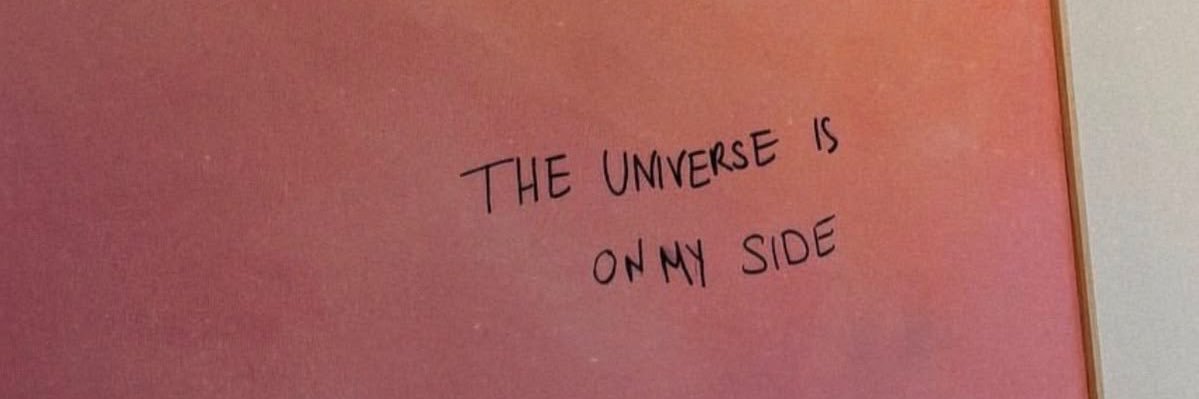 THE UNIVERSE IS
ON MY SIDE